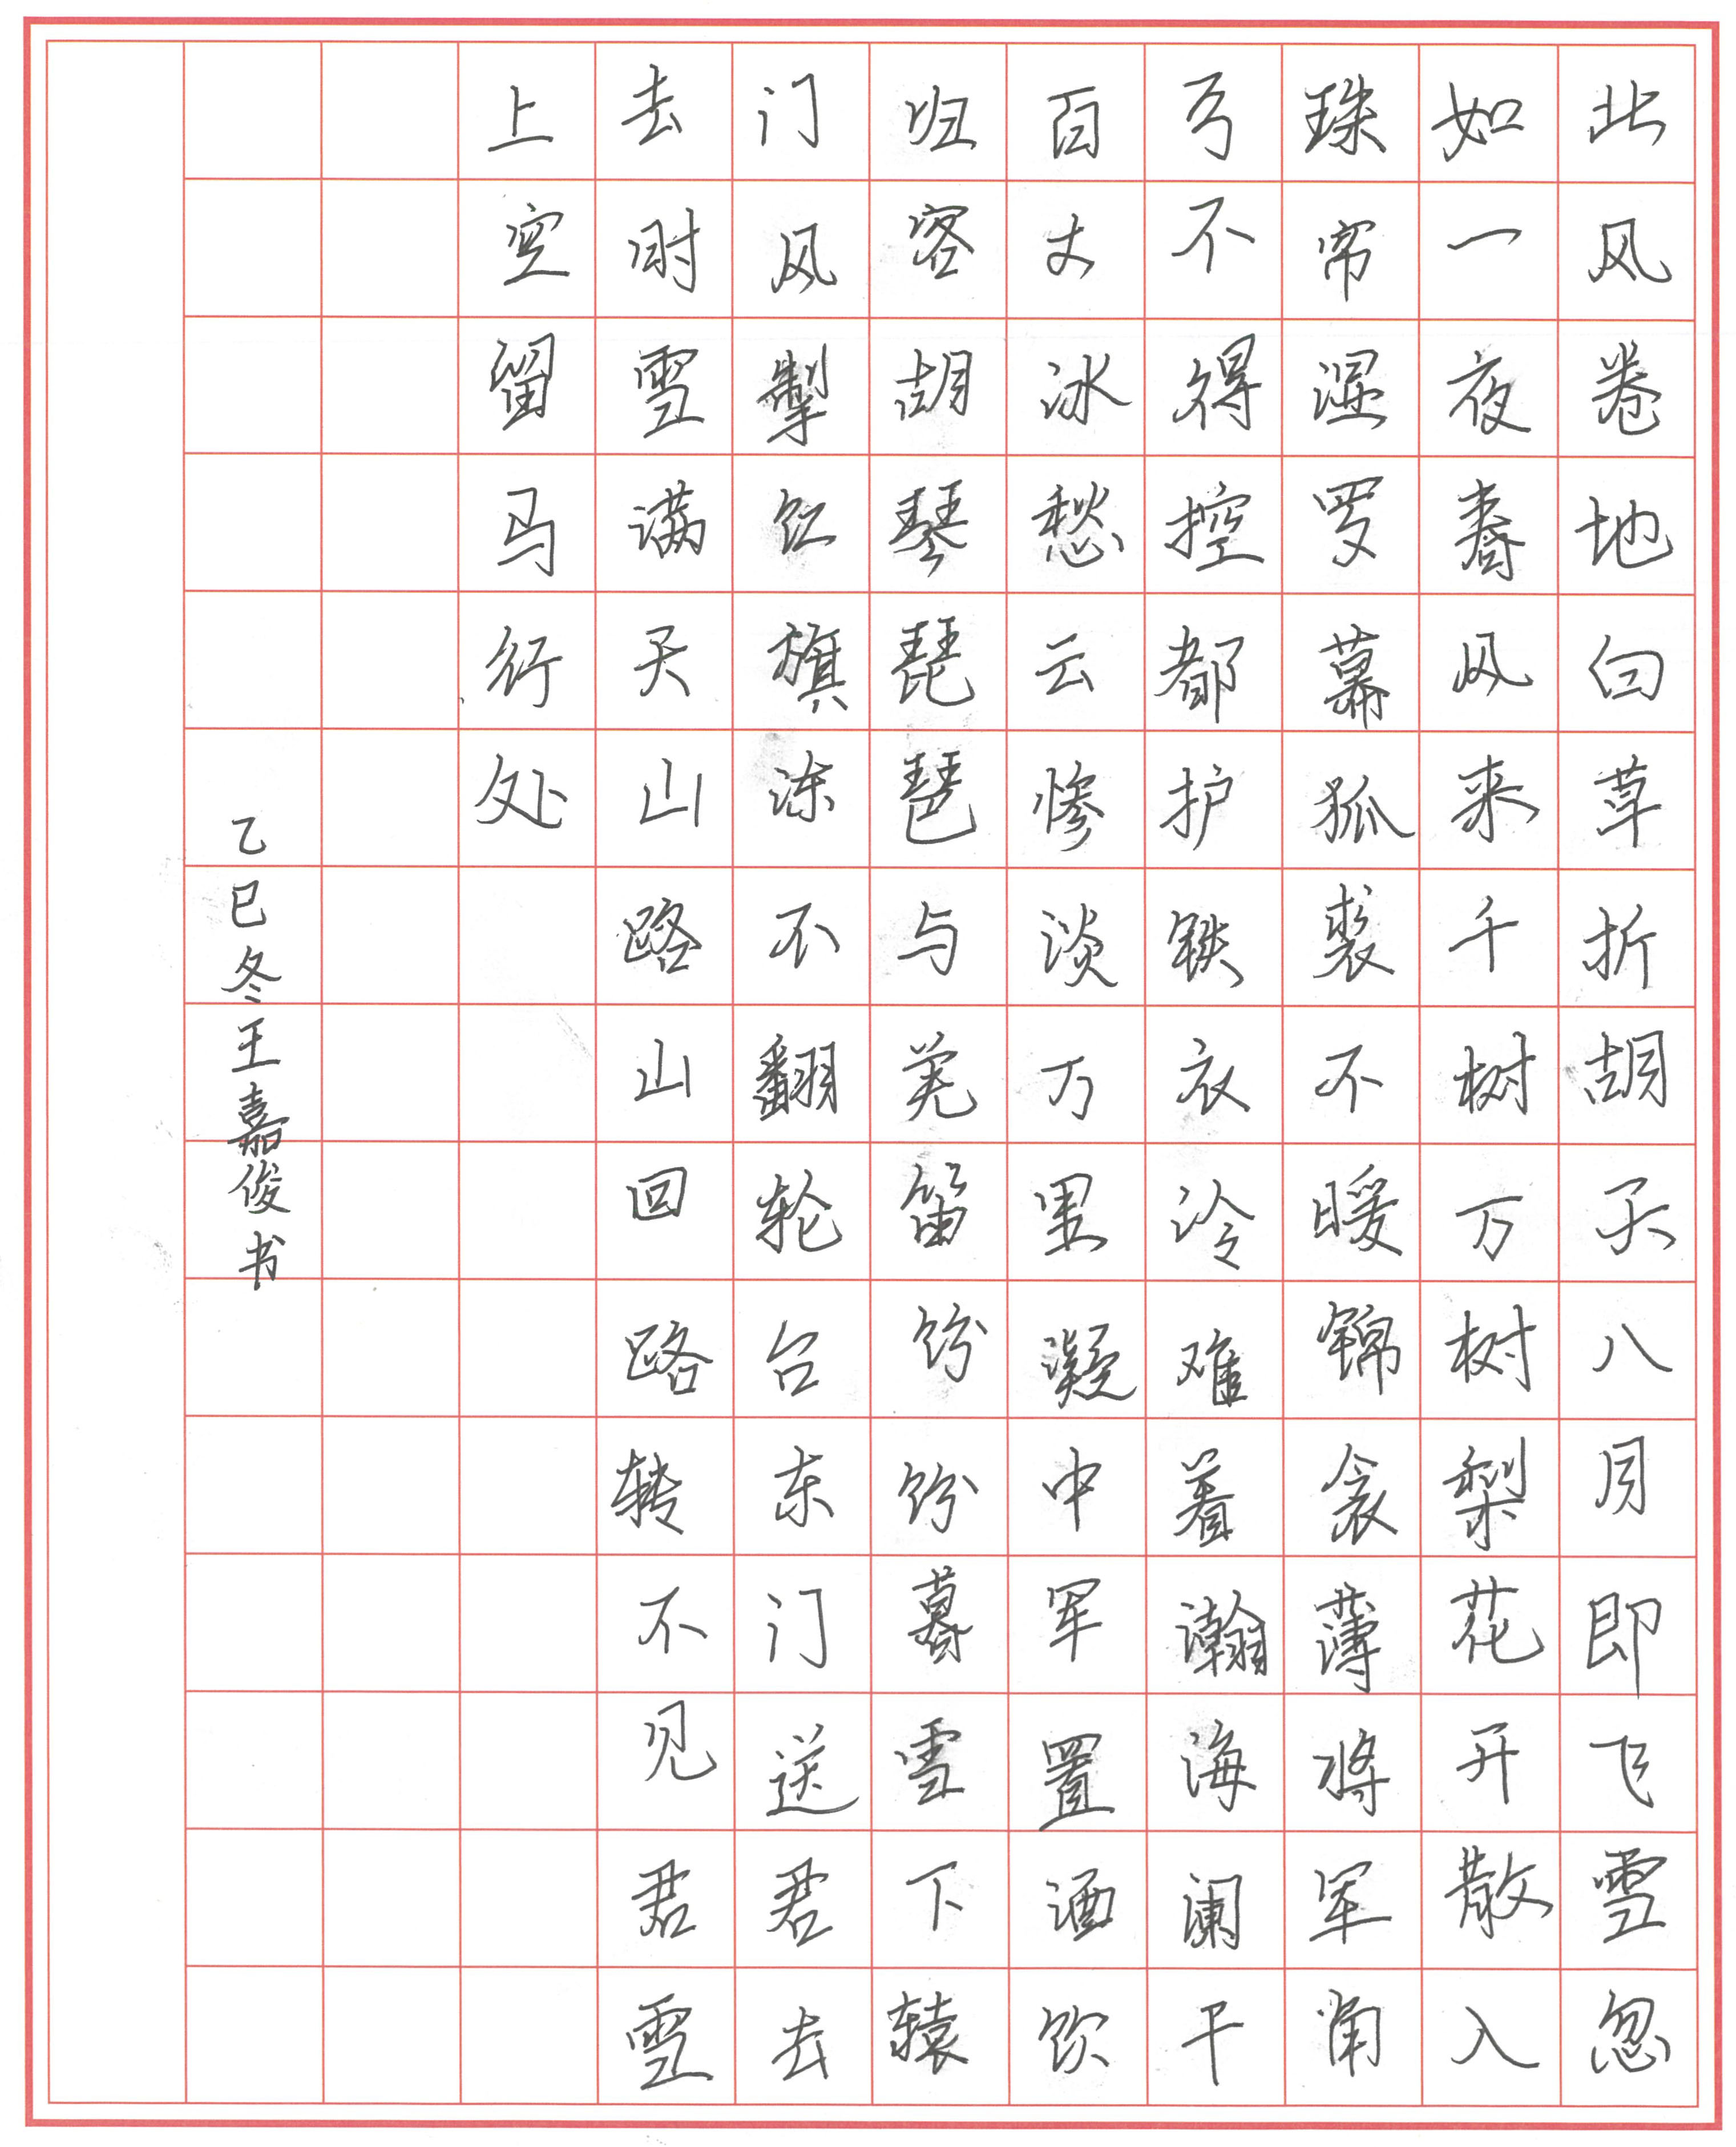 北风卷地白草折胡天八月即飞雪忽
如一夜春风来千树万树梨花开散入
珠帘湿罗幕狐裘不暖锦衾薄将军角
弓不得控都护铁衣冷难着瀚海阑干
百丈冰愁云惨淡万里凝中军置酒饮
归客胡琴琵琶与羌笛纷纷暮雪下辕
门风掣红旗冻不翻轮台东门送君去
去时雪满天山路山回路转不见君雪
上空留马行处
乙巳冬王嘉俊书